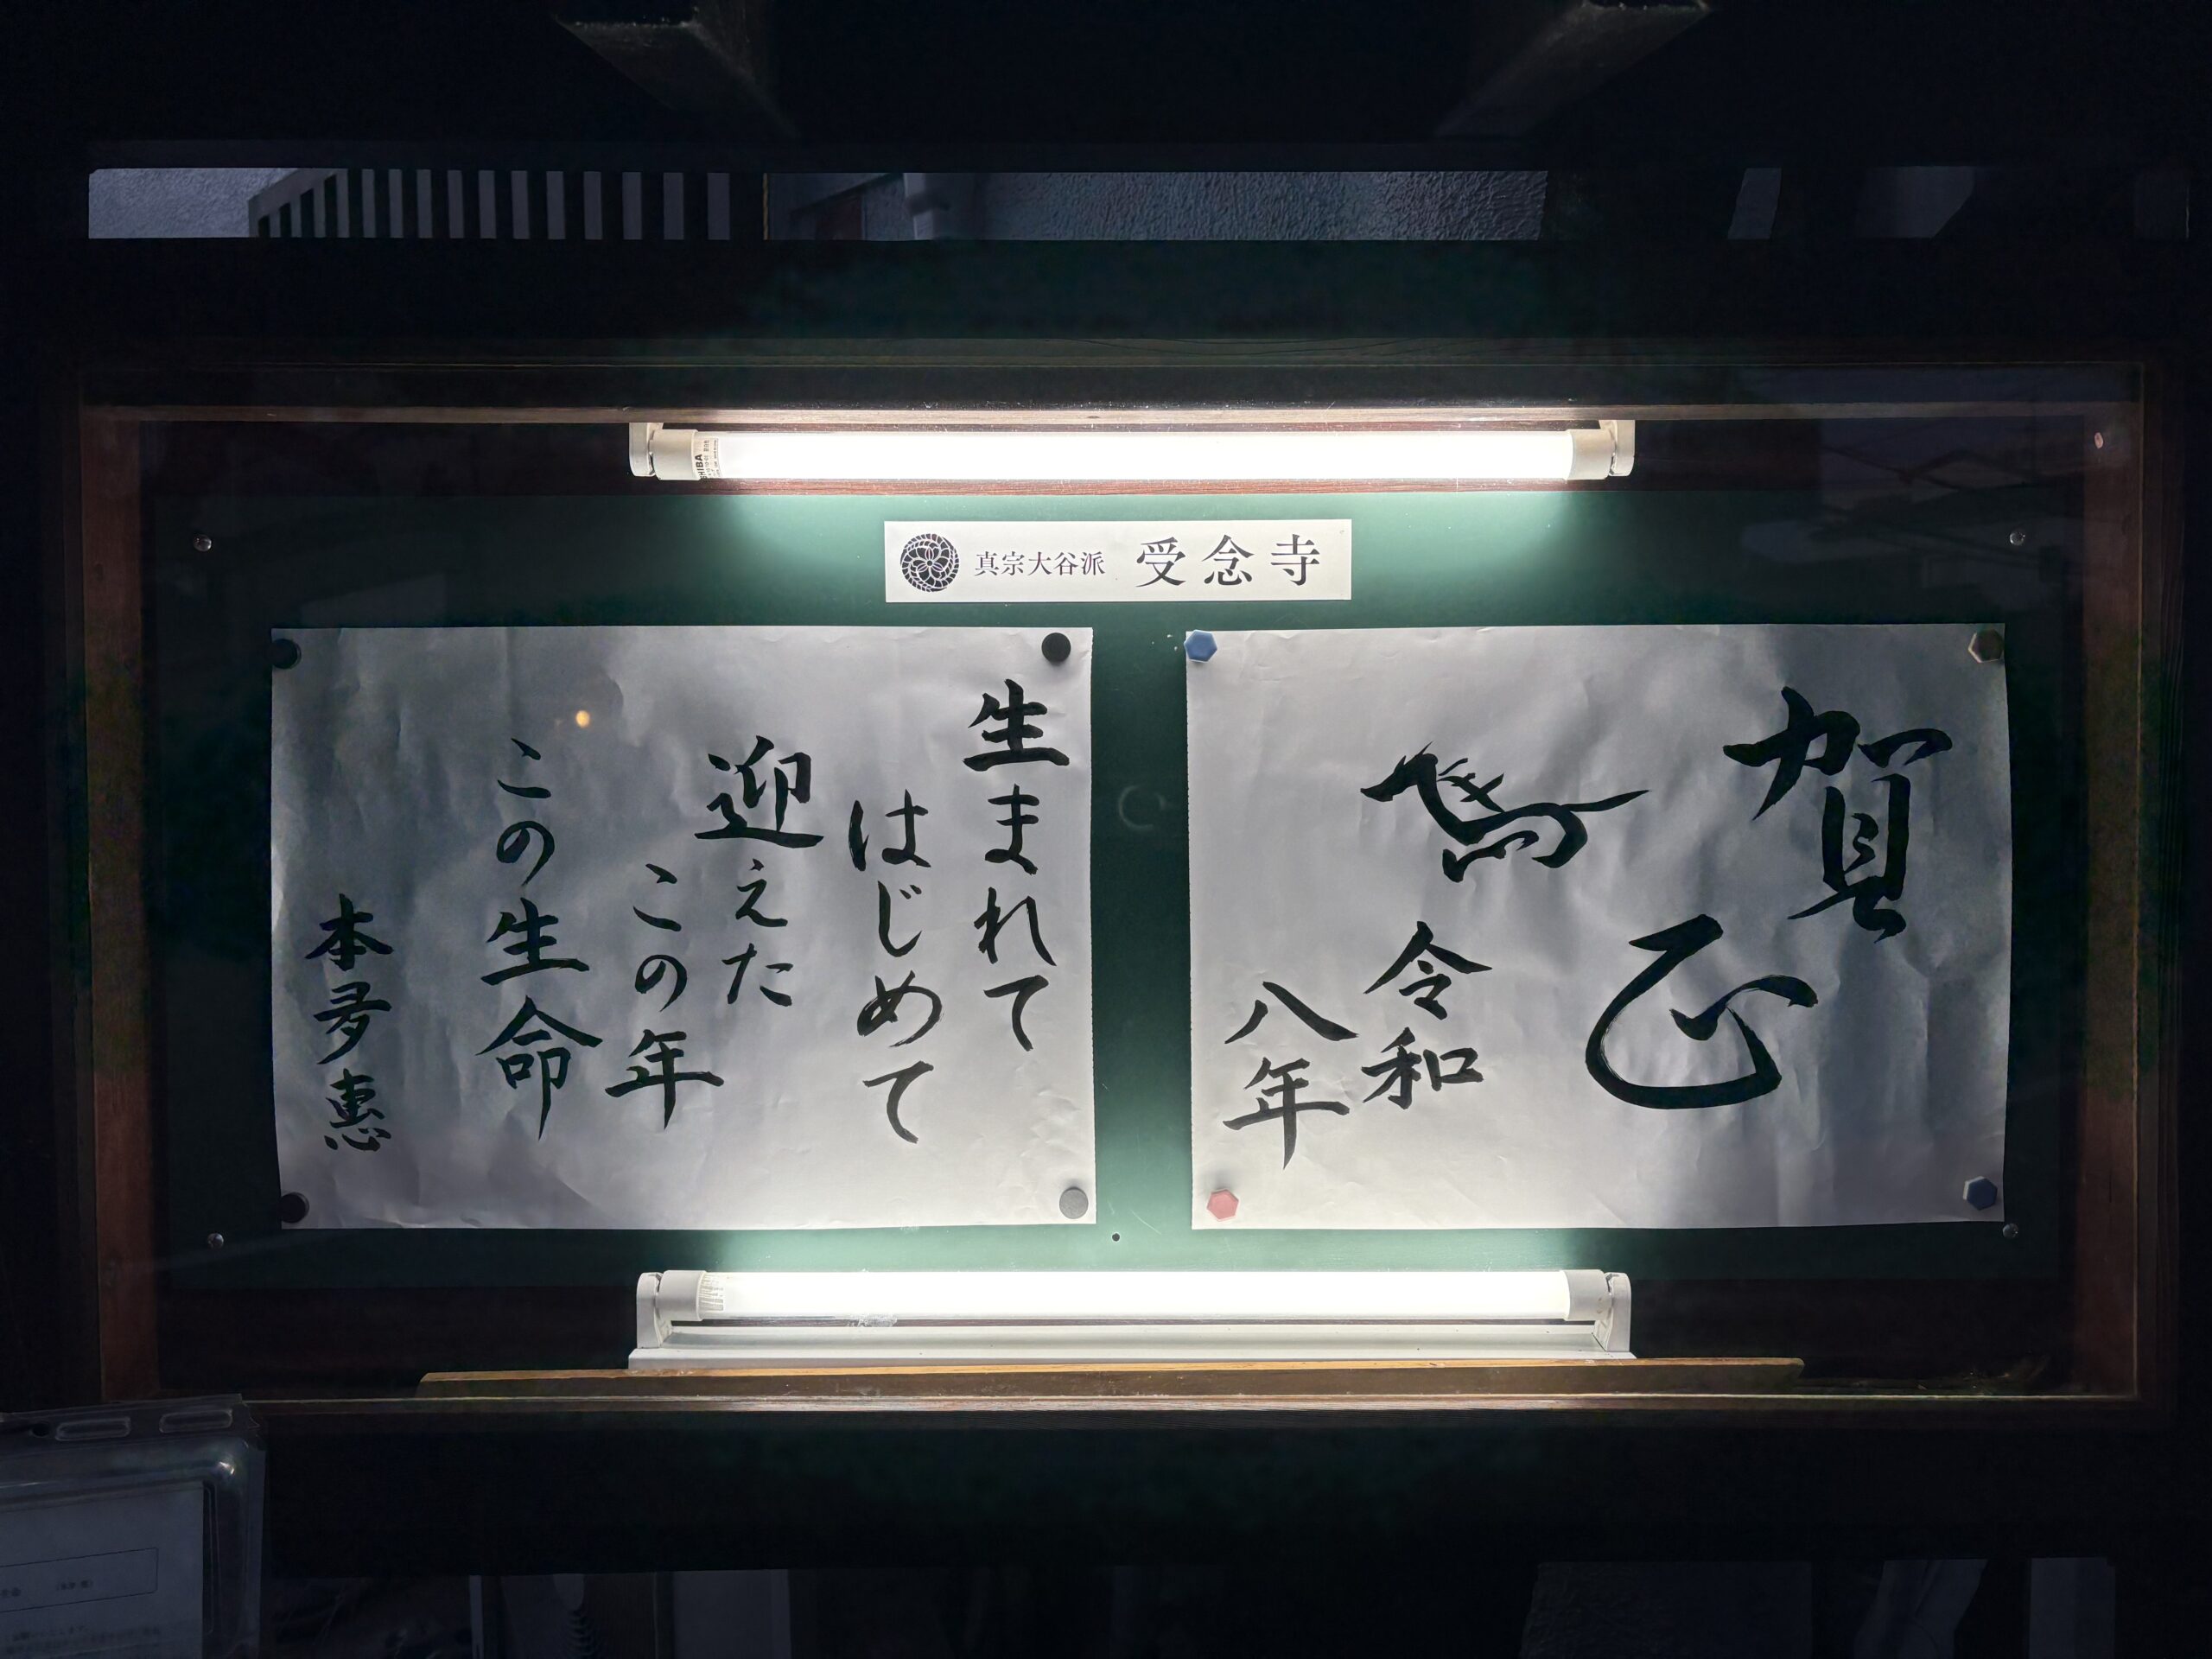 真宗大谷派 受念寺
賀正
馬
令和
八年
生まれて
はじめて
迎えた
この年
この生命
本多恵